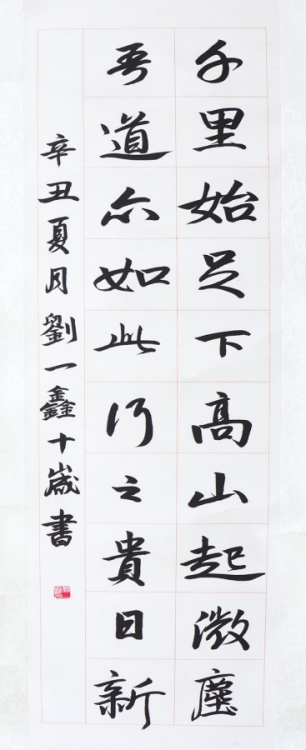 千里始足下高山起微塵
吾道亦如此行之貴日新
辛丑夏月劉一鑫十歲書